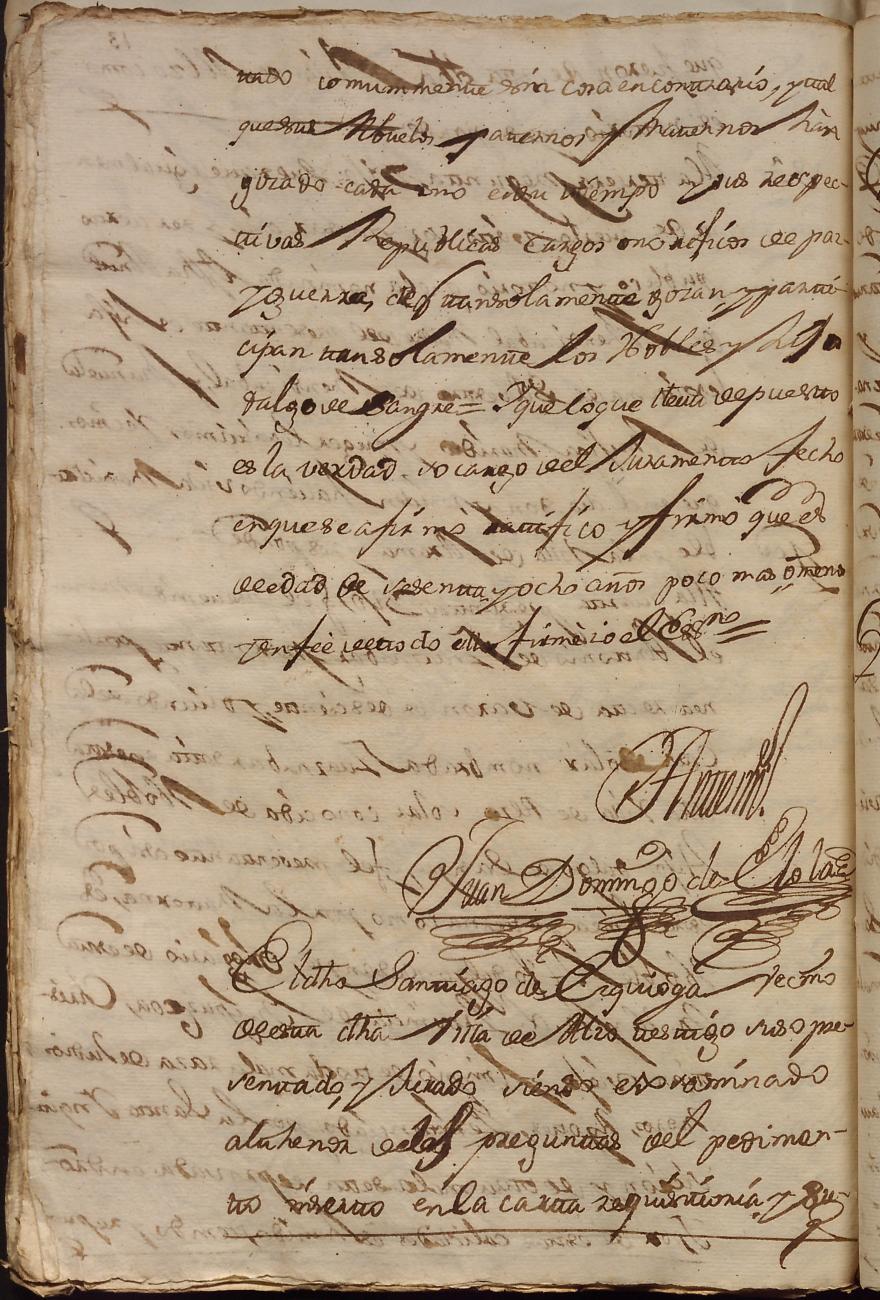 tado comunmente sin cosa en contrario, y tal
que sus Abuelos Paternos y Maternos han
gozado cada uno en su tiempo y sus respec-
tivas Republicas Cargos onorificos de paz
y guerra, de q tansolamente gozan y parti-
cipan tansolamente los Nobles y hijos
dalgo de Sangre = Y que lo que lleva depuesto
es la verdad so cargo del Juramento fecho
en que se afirmó ratifico y firmó que es
de edad de sesenta y ocho años poco mas o menos
y en feè de todo ello firmè io el Essno =
Antemi
Juan Domingo de Elola
El dho Santiago de Eizquioga Vecino
de esta dha Villa de testigo pre-
sentado, y Jurado siendo exsaminado
al thenor de las preguntas del pedimen-
to inserto en la carta requisitoria, y su-